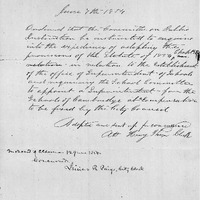 June 7th 1854.
Ordered that the Committee on Public
Instruction be instructed to
into the expediency of adopting the
provisions of the Statute of 1854,
in relation to the establishment
of the office of Superintendent of Schools
and requiring the School Committee
to appoint a Superintendent for the
Schools of Cambridge at compensation
to be fixed by the City Council
Adopted and sent up for concurrence
Att Henry Clerk
In Board of Aldermen June 1854.
Concurred.
Lucius R. Paige, City Clerk